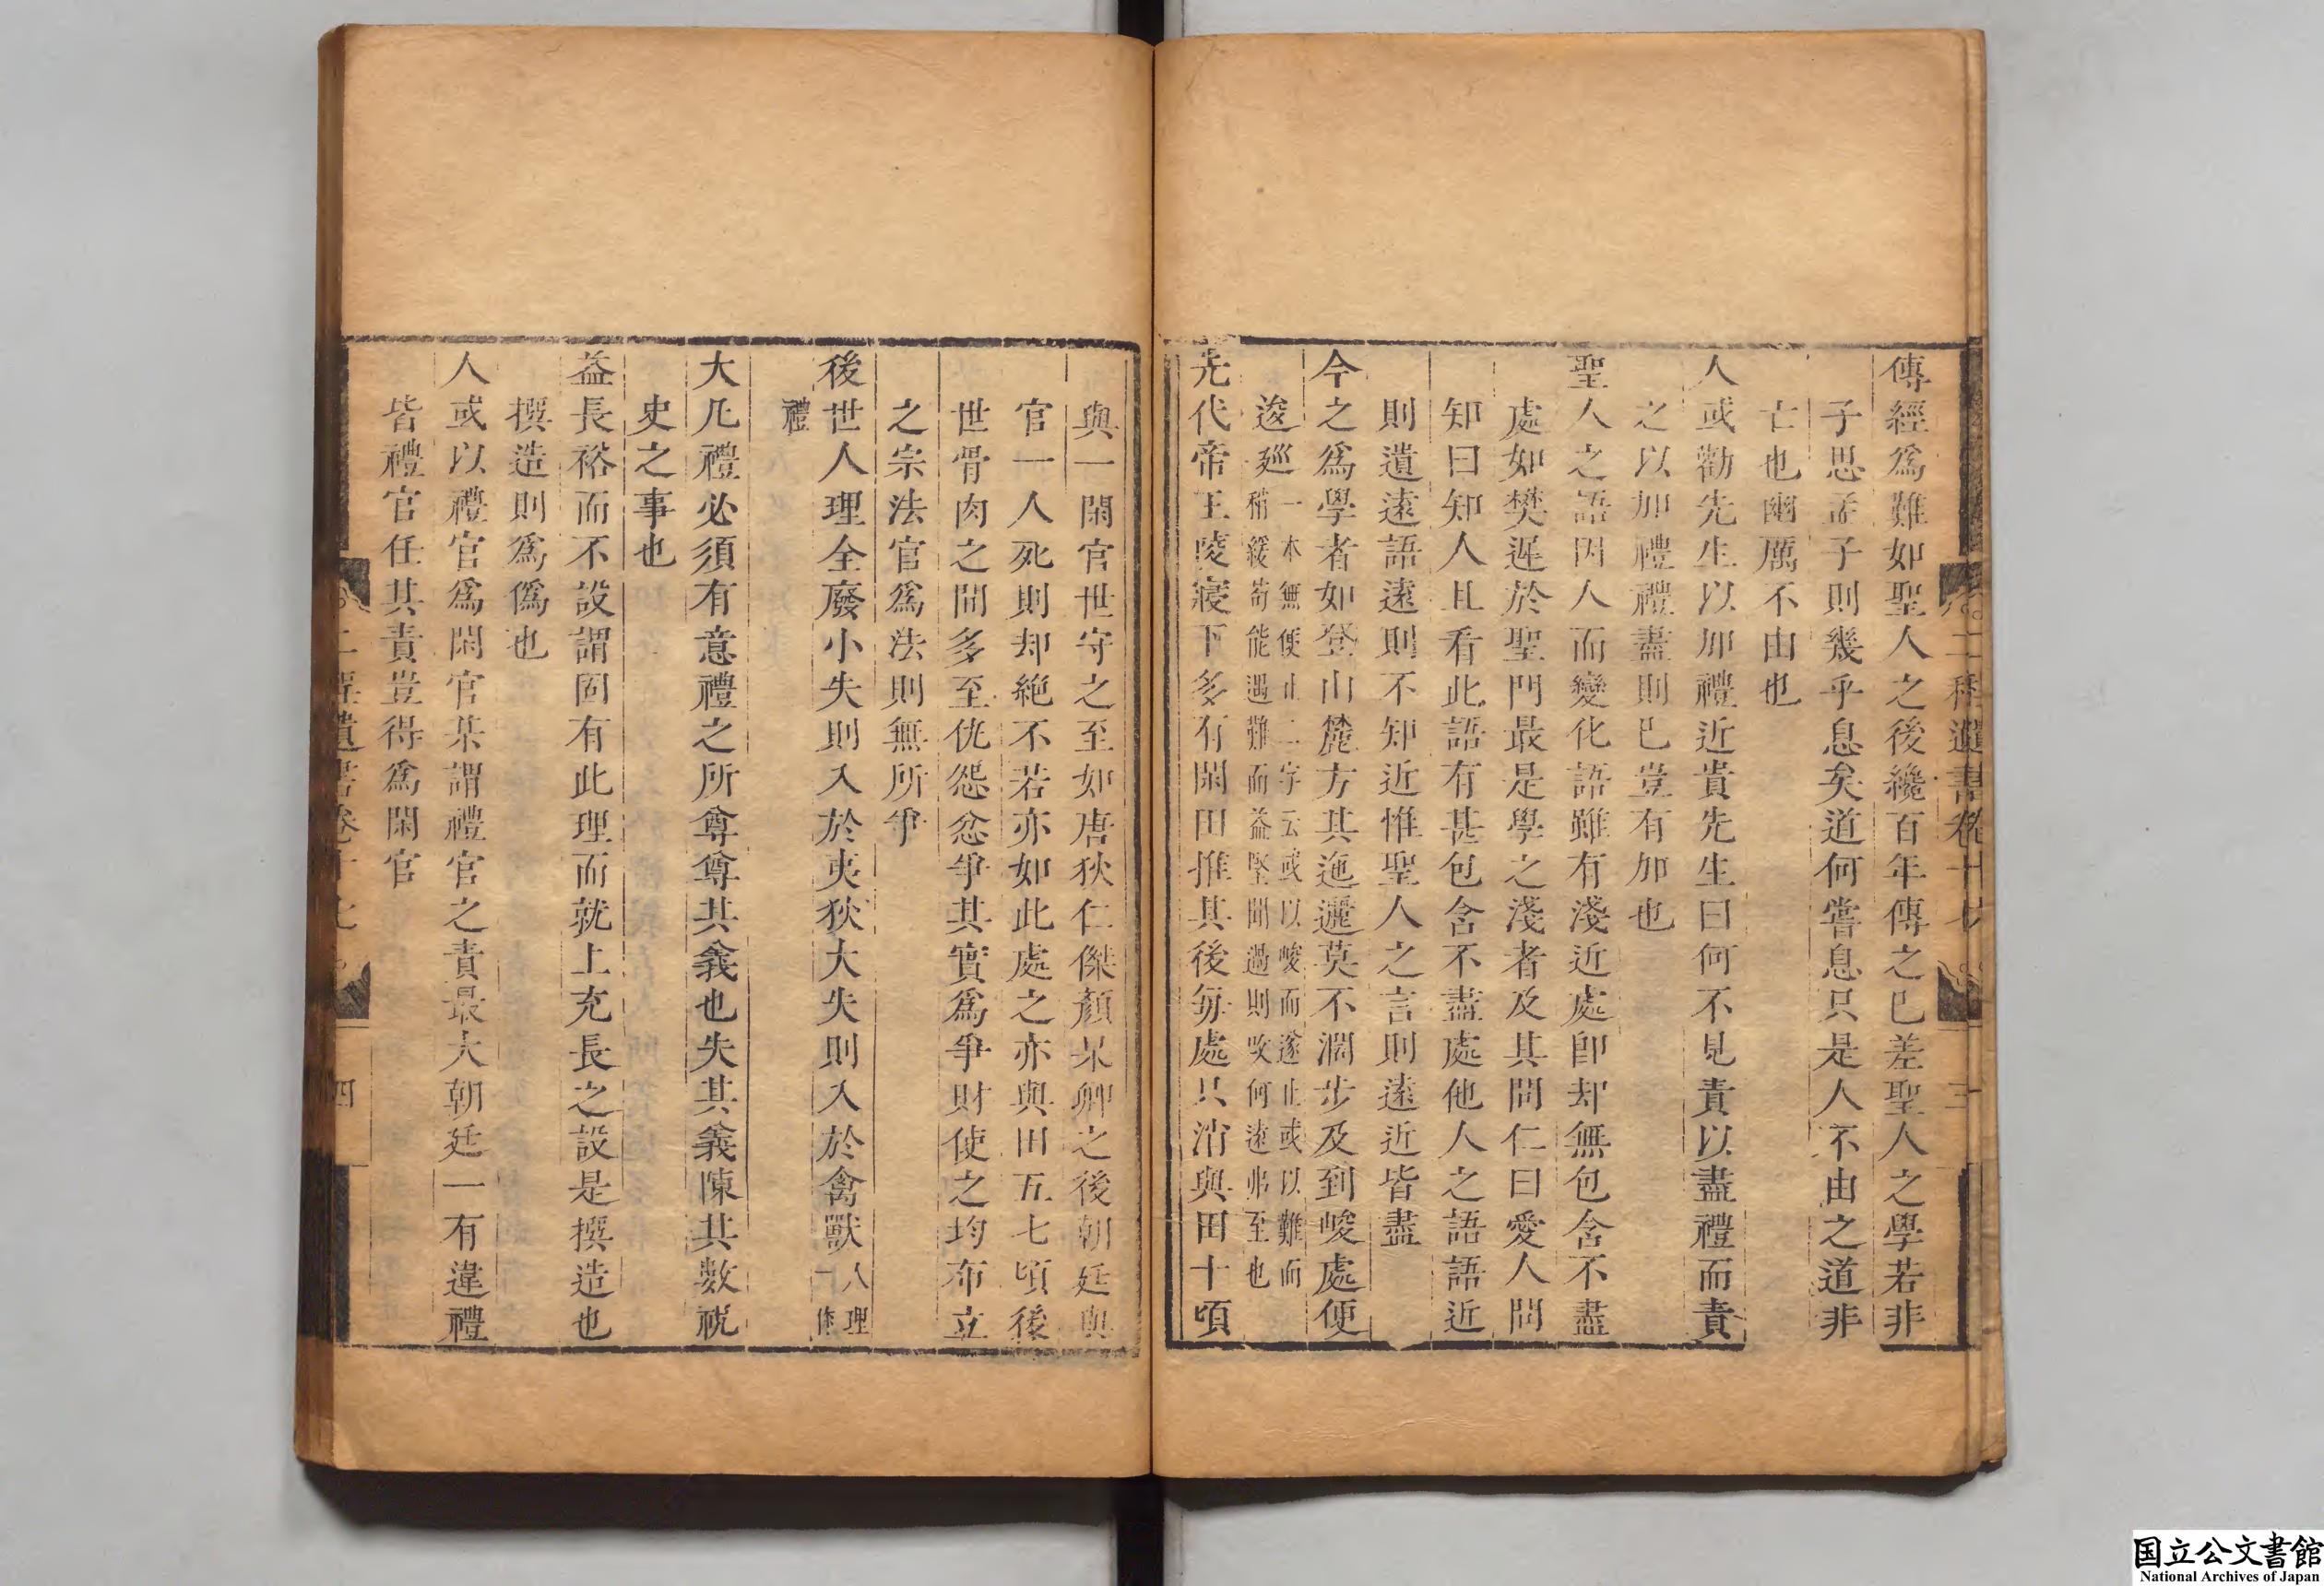 二程遺書卷十七
三
傳經爲難如聖人之後纔百年傳之已差聖人之學若非
子思孟子則幾乎息矣道何嘗息只是人不由之道非
亡也幽厲不由也
人或勸先生以加禮近貴先生曰何不見責以盡禮而責
之以加禮禮盡則已豈有加也
聖人之語因人而變化語雖有淺近處即却無包含不盡
處如樊遲於聖門最是學之淺者及其問仁曰愛人問
知曰知人且看此語有甚包含不盡處他人之語語近
則遺遠語遠則不知近惟聖人之言則遠近皆盡
今之爲學者如登山麓方其迤邐莫不濶步及到峻處便
逡巡一本無便止二字云或以峻而遂止或以難而
稍緩苟能遇難而益堅聞過則改何遠弗至也
先代帝王陵寢下多有閑田推其後每處只消與田十頃
與一閑官世守之至如唐狄仁傑顏杲卿之後朝廷與
官一人死則却絶不若亦如此處之亦與田五七頃後
世骨肉之間多至仇怨忿爭其實爲爭財使之均布立
之宗法官爲法則無所爭
後世人理全廢小失則入於夷狄大失則入於禽獸人理
一作
禮
大凡禮必須有意禮之所尊尊其義也失其義陳其數祝
史之事也
益長裕而不設謂固有此理而就上充長之設是撰造也
撰造則爲僞也
人或以禮官爲閑官某謂禮官之責最大朝廷一有違禮
皆禮官任其責豈得爲閑官
二程遺書卷十七
四
国立公文書館
National Archives of Japan